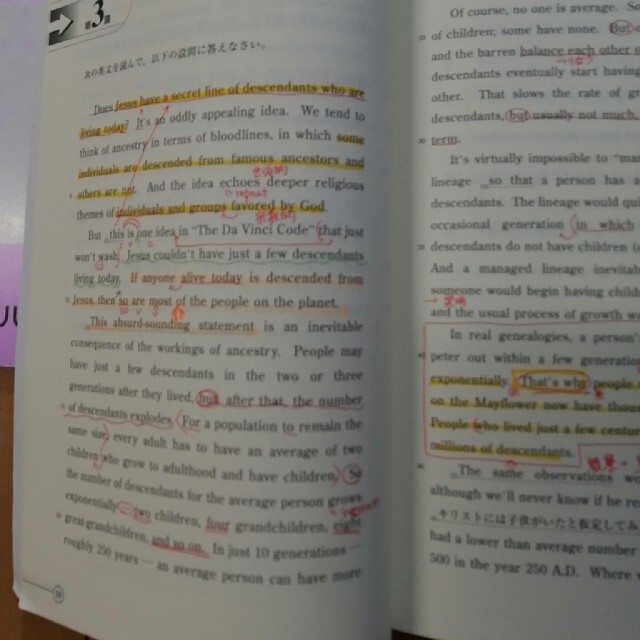 第3講
次の英文を読んで、以下の設問に答えなさい。
Does Jesus have a secret line of descendants who are
living today? It's an oddly appealing idea. We tend to
think of ancestry in terms of bloodlines, in which some
individuals are descended from famous ancestors and
others are not. And the idea echoes deeper religious
themes of individuals and groups favored by God.
But this is one idea in "The Da Vinci Code" that just
won't wash. Jesus couldn't have just a few descendants
living today. If anyone alive today is descended from
Jesus, then so are most of the people on the planet.
This absurd-sounding statement is an inevitable
consequence of the workings of ancestry. People may
have just a few descendants in the two or three
generations after they lived, but after that, the number
of descendants explodes. For a population to remain the
same size, every adult has to have an average of two
children who grow to adulthood and have children. So
the number of descendants for the average person grows
exponentially — two children, four grandchildren, eight
great-grandchildren, and so on. In just 10 generations —
roughly 250 years — an average person can have more
Of course, no one is average. So
of children; some have none. But
and the barren balance each other
descendants eventually start having
other. That slows the rate of gr
descendants, but usually not much
term.
It's virtually impossible to "ma
lineage so that a person has a
descendants. The lineage would qui
occasional generation in which
descendants do not have children (
And a managed lineage inevitab
someone would begin having childr
and the usual process of growth wo
In real genealogies, a person'
peter out within a few generation
exponentially. That's why people
on the Mayflower now have thou
People who lived just a few centur
millions of descendants.
The same observations wo
although we'll never know if he re
キリストには子供がいたと仮定してみ
had a lower than average number
500 in the year 250 A.D. Where w